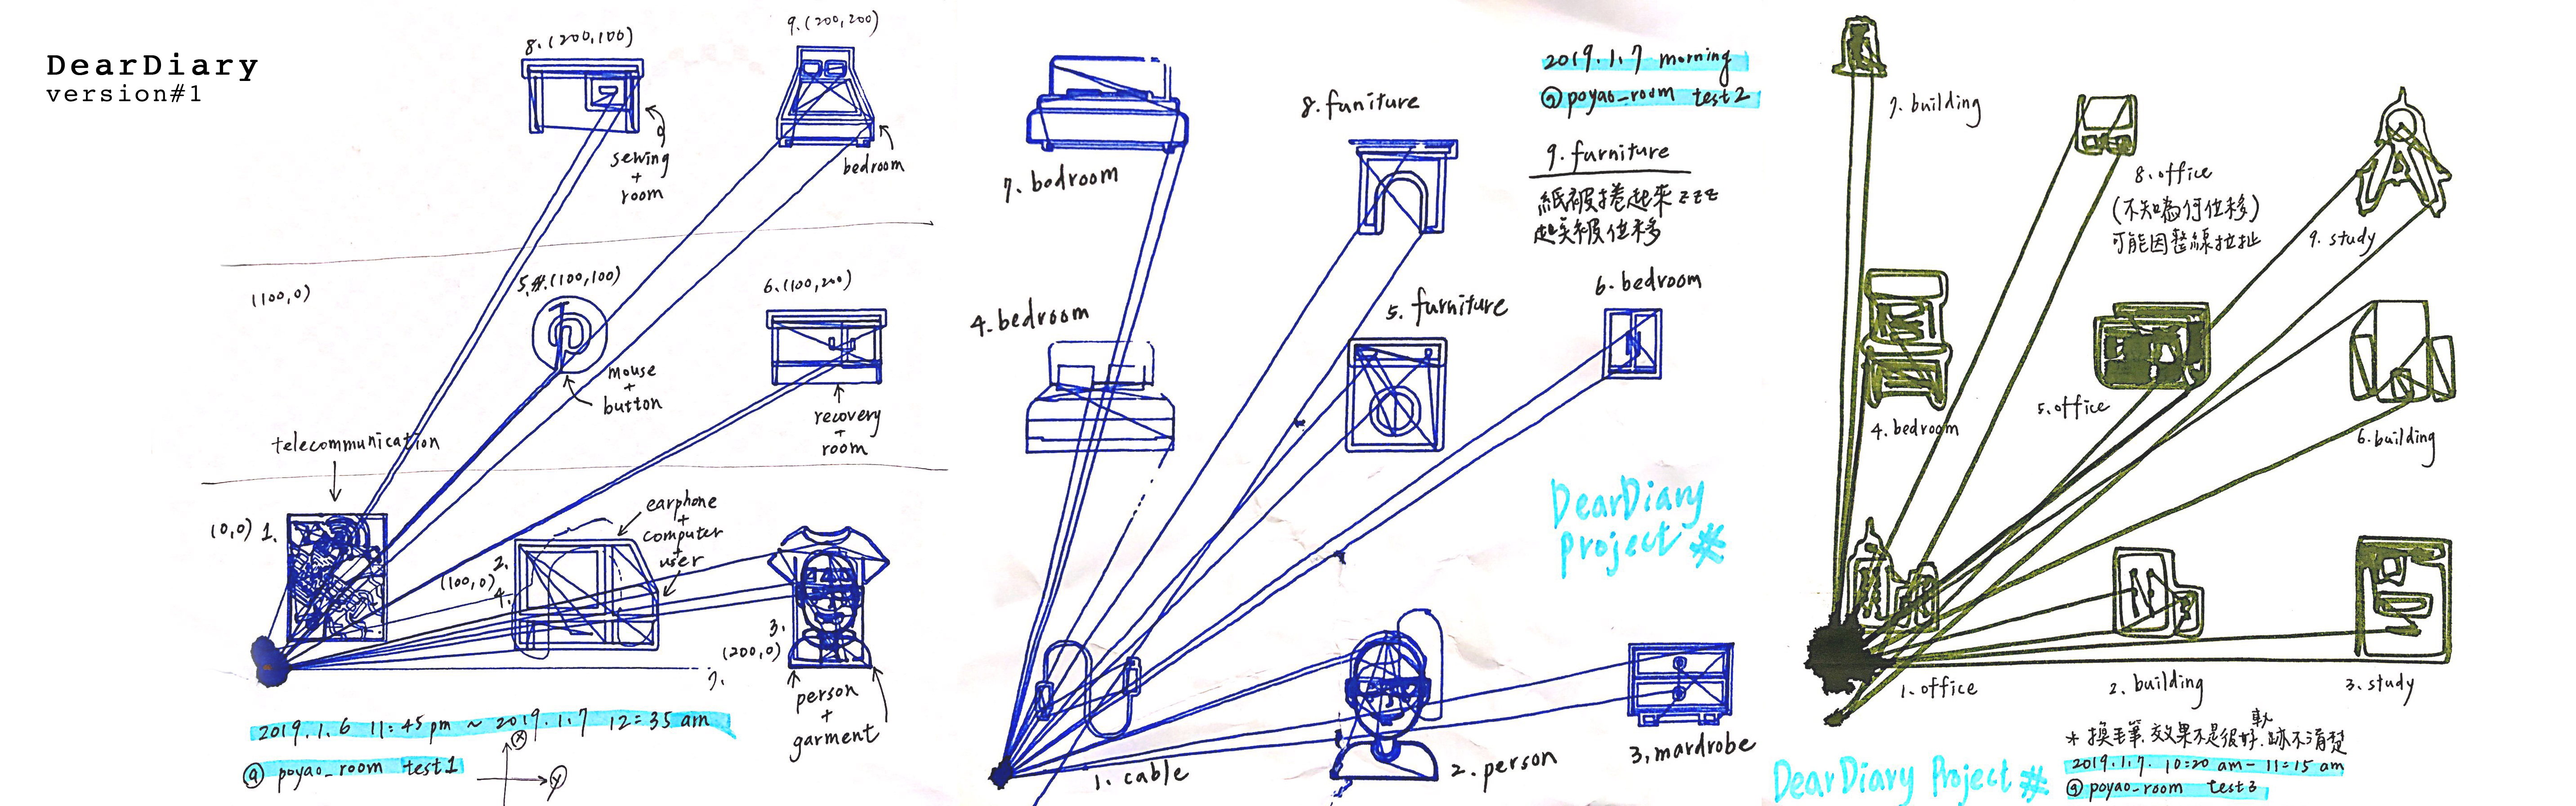 DearDiary
version#1
8.(200,100)
9.(200,200)
sewing
+
room
bedroom
(100,0)
5.#.(100,100)
6.(100,200)
mouse
+
button
recovery
+
room
telecommunication
(0,0) 1.
earphone
+
computer
+
user
2.
(100,0)
4.
3.
(200,0)
7.
person
+
garment
2019.1.6 11:45pm ~ 2019.1.7 12:35 am
@ poyao_room test1
X
Y
7. bodroom
8. funiture
2019.1.7 morning
@ poyao_room test2
9. furniture
紙被捲起來 zzz
起哭狠位移
4. bedroom
5. furniture
6. bedroom
DearDiary
project #
1. cable
2. person
3. mardrobe
7. building
8. office
(不知為何位移)
可能因整線拉扯
9. study
4. bedroom
5. office
6. building
1. office
2. building
3. study
* 換毛筆.效果不是很好.軌跡不清楚
2019.1.7. 10:20 am - 11:15 am
@ poyao_room test3
DearDiary Project #